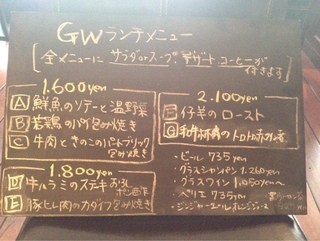 GWランチメニュー
全メニューに サラダorスープ、デザート、コーヒーが
付きます
1.600yen
A 鮮魚のソテーと温野菜
B 若鶏のパイ包み焼き
C 牛肉ときのこのパートブリック
包み焼き
1.800yen
D 牛ハラミのステキ おろし
ポン酢
E 豚ヒレ肉のカダイフ包み焼き
2.100yen
F 仔羊のロースト
G 和牛ホホ肉のトロトロ赤ワイン煮
・ビール 735yen
・グラスシャンパン 1.260yen
・グラスワイン 1.050yen〜
・ペリエ 735yen
・ジンジャーエール オレンジジュース